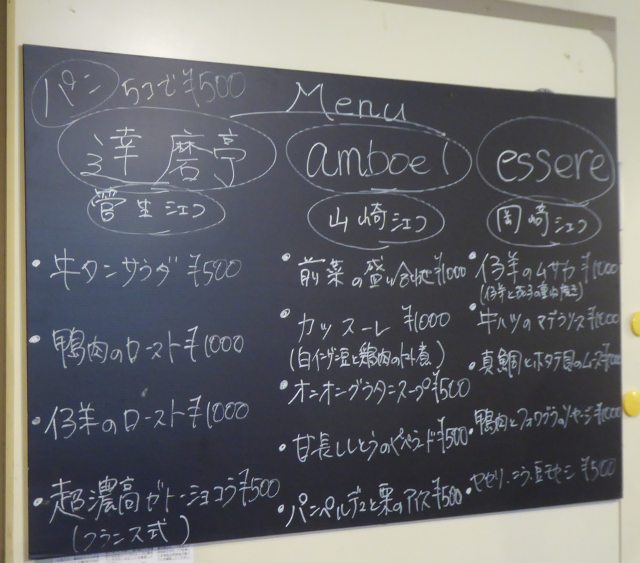 パン 5コで¥500
Menu
達磨亭
菅生シェフ
・牛タンサラダ ¥500
・鴨肉のロースト ¥1000
・仔羊のロースト ¥1000
・超濃高ガトーショコラ ¥500
(フランス式)
amboel
山崎シェフ
・前菜の盛り合わせ ¥1000
・カッスーレ ¥1000
(白インゲン豆と鶏肉のトマト煮)
・オニオングラタンスープ ¥500
・甘長ししとうの ¥500
・パンペルデュと栗のアイス ¥500
essere
岡崎シェフ
・仔羊のムサカ ¥1000
(仔羊と茄子の重ね焼き)
・牛ハツのマデラソース ¥1000
・真鯛とホタテ貝のムース ¥1000
・鴨肉とフォワグラのソーセージ ¥1000
・セセリ、 ¥500